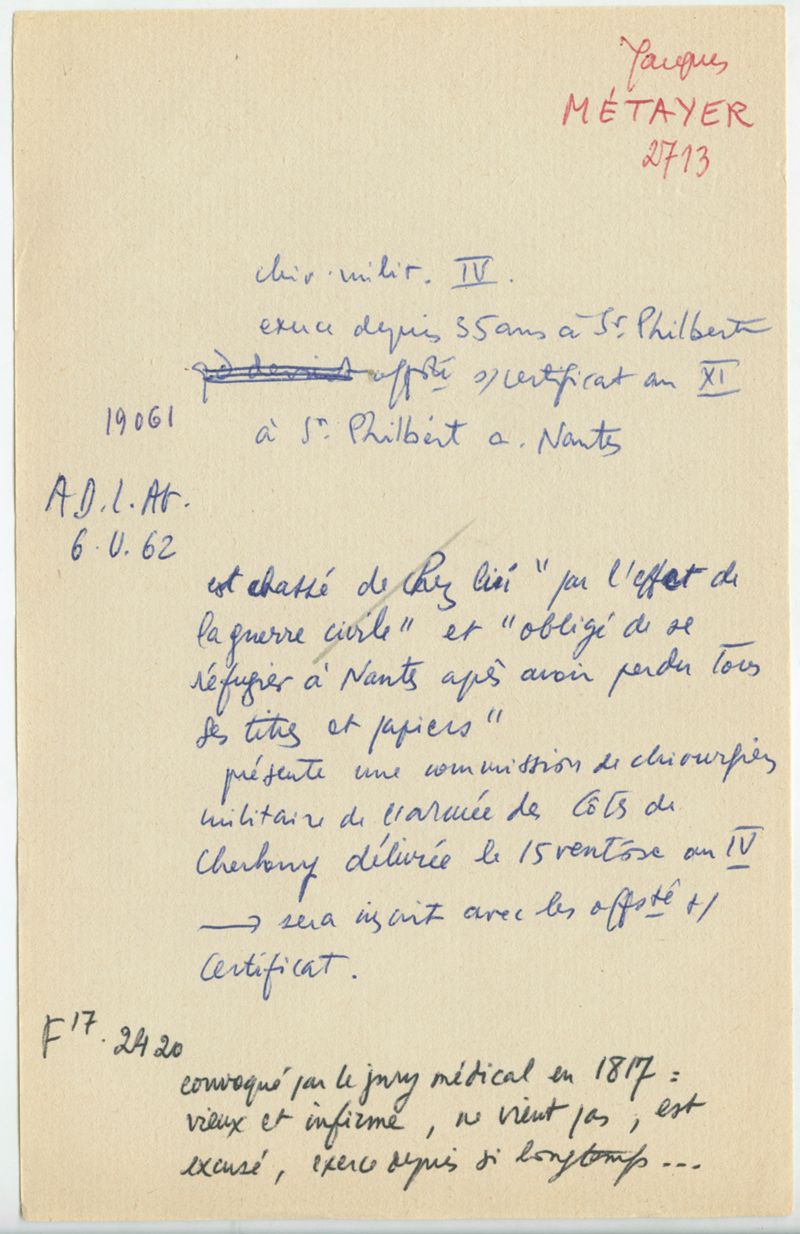 Jacques
MÉTAYER
2713
chir. milit. IV.
exerce depuis 35 ans à St. Philbert
offsté s/certificat an XI
19061
à St. Philbert a. Nantes
A.D.L.At.
6.V.62
est chassé de chez lui "par l'effet de
la guerre civile" et "obligé de se
réfugier à Nantes après avoir perdu tous
ses titres et papiers"
présente une commission de chirurgien
militaire de l'armée des Côtes de
Cherbourg délivrée le 15 ventôse an IV
→ sera inscrit avec les offsté s/
certificat.
F17. 2420
convoqué par le jury médical en 1817 :
vieux et infirme, ne vient pas, est
excusé, exerce depuis si longtemps...